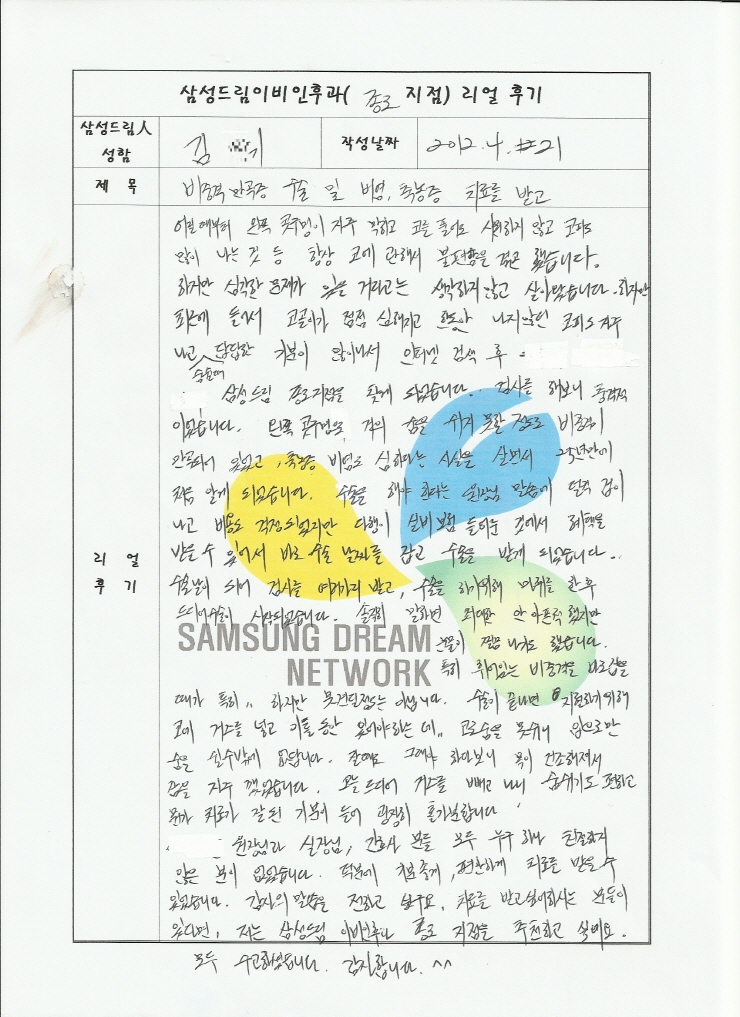 삼성드림이비인후과( 종로 지점) 리얼 후기
삼성드림人 성함
김 기
작성날짜
2012. 4. 21
제 목
비중격 만곡증 수술 및 비염, 축농증 치료를 받고
어릴때부터 왼쪽 콧구멍이 자주 막히고 코를 풀어도 시원하지 않고 코피도
많이 나는 것 등 항상 코에 관해서 불편함을 겪곤 했습니다.
하지만 심각한 문제가 있을 거라고는 생각하지않고 살아왔습니다. 하지만
최근에 들어서 코골이가 점점 심해지고 한동안 나지않던 코피도 자주
나고 답답한 기분이 많이나서 인터넷 검색 후
수소문해
삼성드림 종로지점을 찾게 되었습니다.. 검사를 해보니 충격적
이었습니다. 왼쪽 콧구멍으로 거의 숨을 쉬지 못할 정도로 비중격이
만곡되어 있었고, 축농증 비염도 심하다는 사실을 살면서 25년만에
처음 알게 되었습니다. 수술을 해야 한다는 원장님 말씀에 덜컥 겁이
나고 비용도 걱정되었지만 다행이 실비보험 들어둔 것에서 혜택을
받을 수 있어서 바로 수술 날짜를 잡고 수술을 받게 되었습니다..
수술날이 되어 검사를 여러가지 받고, 수술을 하기위해 마취를 한 후
드디어 수술이 시작되었습니다. 솔직히 말하면 최대한 안아픈척 했지만
눈물이 찔끔 나기도 했습니다.
특히 휘어있는 비중격을 바로잡을
때가 특히,, 하지만 못견딜정도는 아닙니다. 수술이 끝나면 지혈하기위해
코에 거즈를 넣고 이틀 동안 있어야하는데,, 코로숨을 못쉬니 입으로만
숨을 쉴수밖에 없답니다. 잘때도 그래야 하다보니 목이 건조해져서
잠을 자주 깼었습니다. 오늘 드디어 거즈를 빼고 나니 숨쉬기도 편하고
뭔가 치료가 잘 된 기분이 들어 굉장히 홀가분합니다
원장님과 실장님, 간호사 분들 모두 누구 하나 친절하지
않은 분이 없었습니다. 덕분에 기분좋게, 편안하게 치료를 받을 수
있었습니다. 감사의 말씀을 전하고 싶구요. 치료를 받고싶어하시는 분들이
있다면, 저는 삼성드림 이비인후과 종로 지점을 추천하고 싶네요.
모두 수고하셨습니다. 감사합니다. ^^
리 얼
후 기
SAMSUNG DREAM
NETWORK